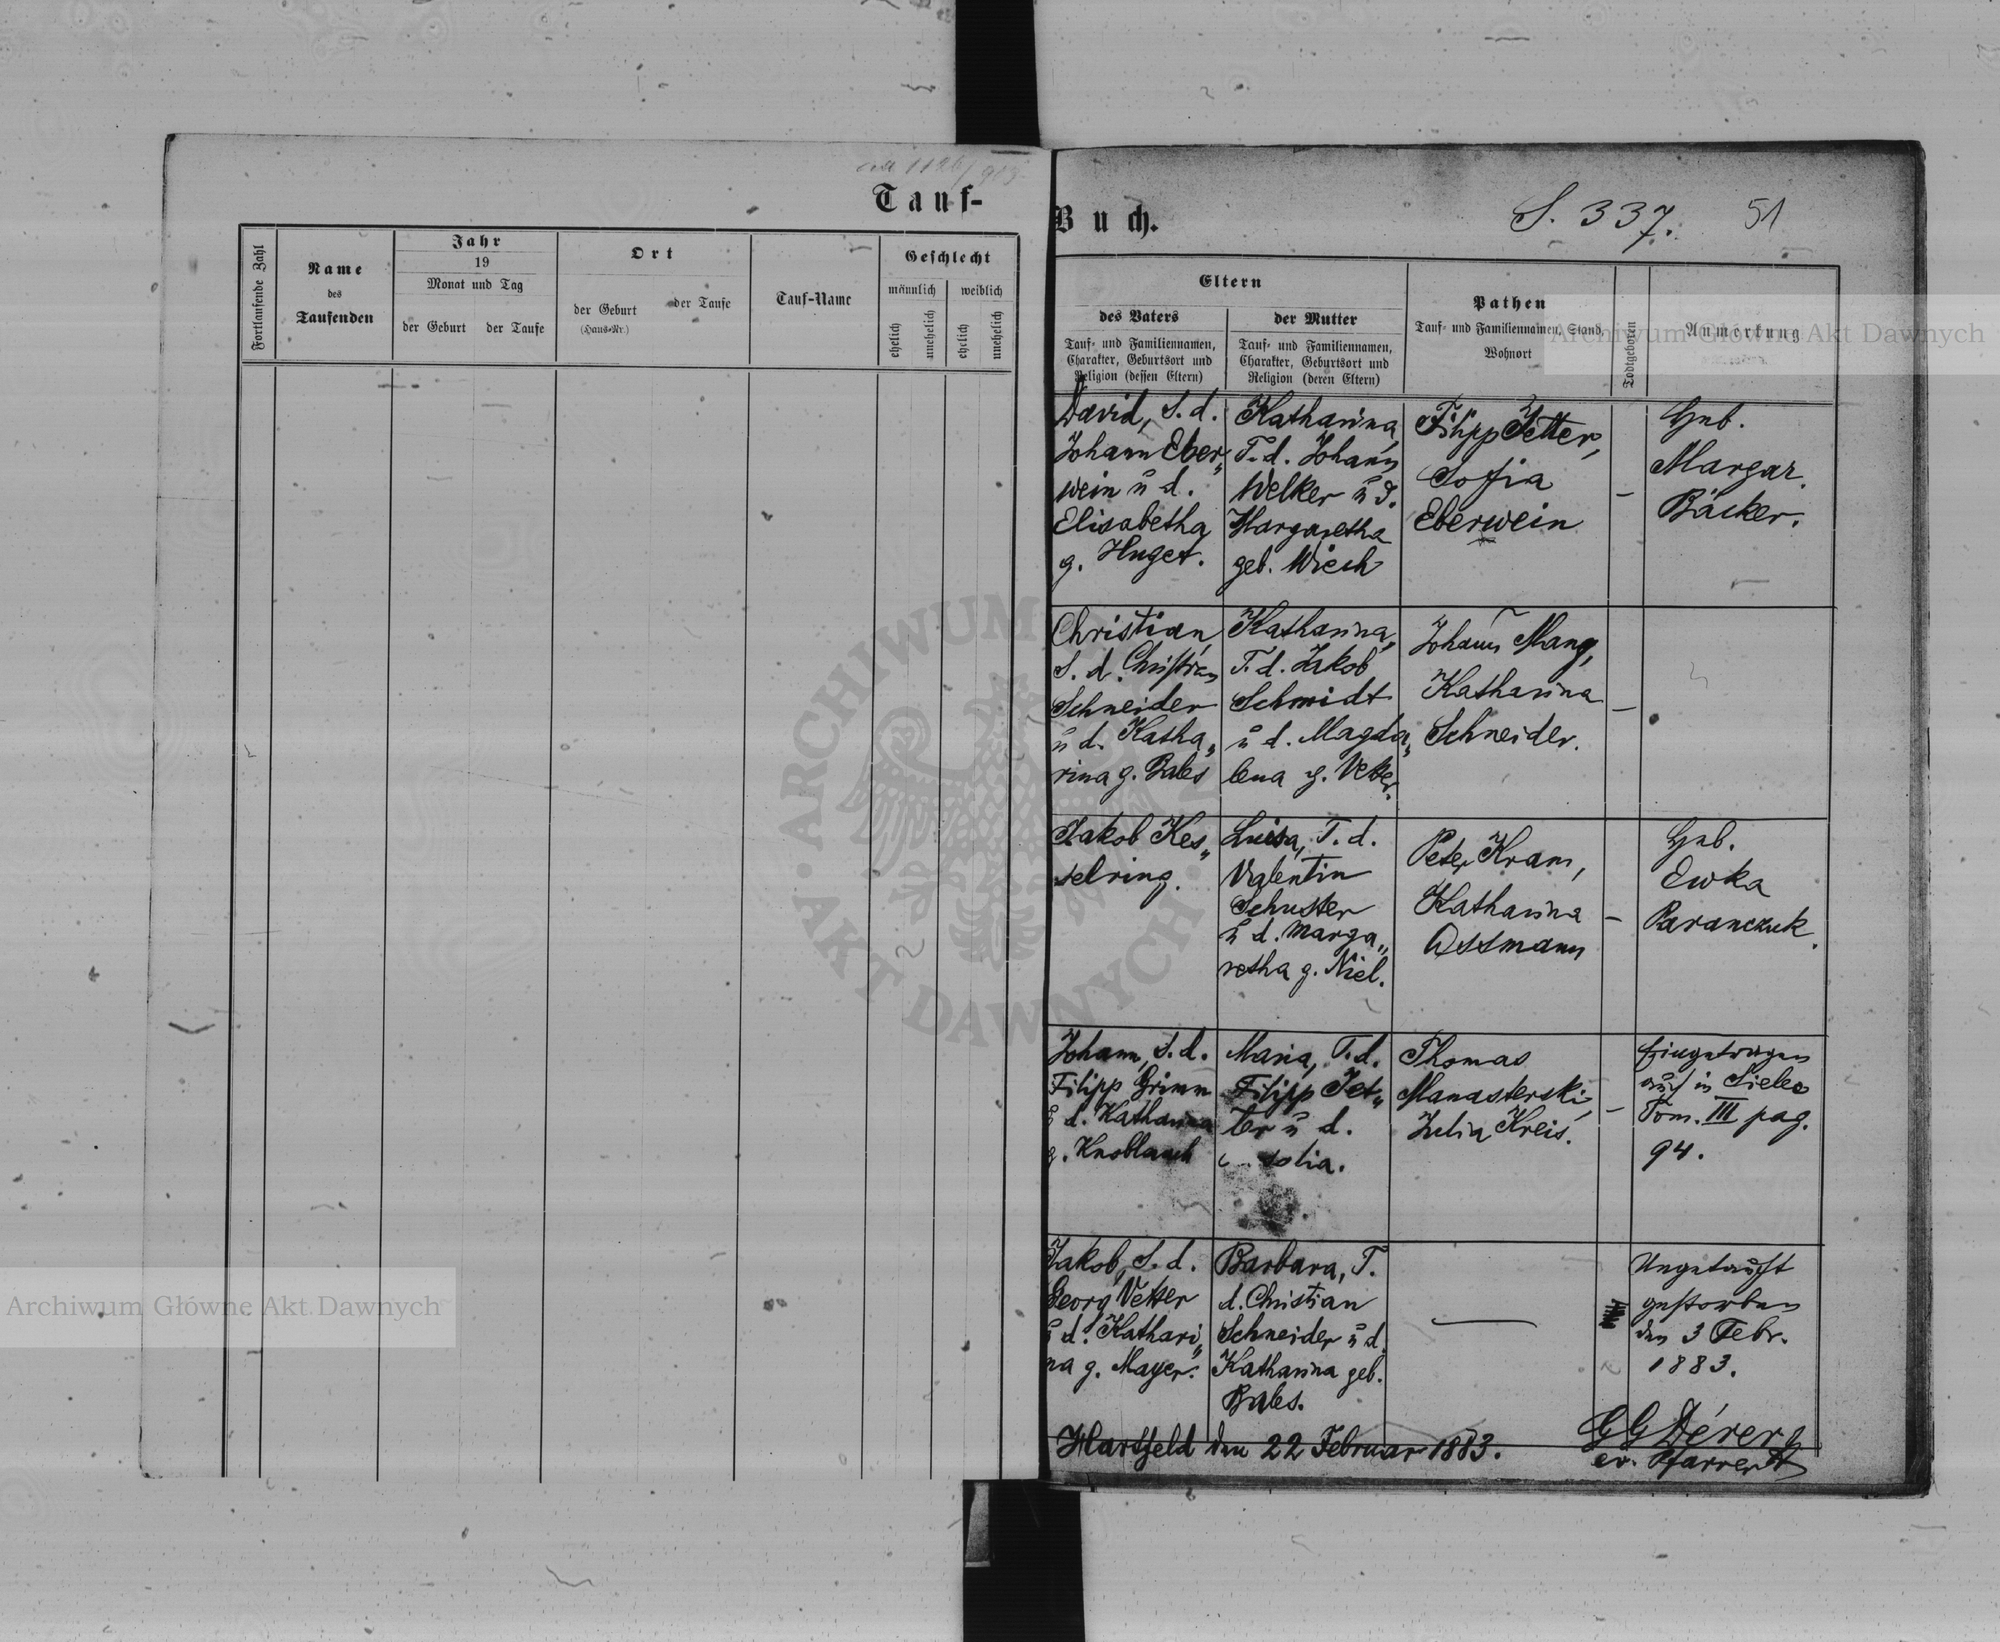 Tauf-
Buch.
S. 337.
51
Fortlaufende Zahl
Name
des
Taufenden
Jahr
19
Monat und Tag
der Geburt
der Taufe
Ort
der Geburt
(Haus-Nr.)
der Taufe
Tauf-Name
Geschlecht
männlich
weiblich
ehelich
unehelich
ehelich
unehelich
Eltern
des Vaters
Tauf- und Familiennamen,
Charakter, Geburtsort und
Religion (dessen Eltern)
der Mutter
Tauf- und Familiennamen,
Charakter, Geburtsort und
Religion (deren Eltern)
Pathen
Tauf- und Familiennamen, Stand,
Wohnort
Todtgeboren
Anmerkung
David, S. d.
Johann Eber„
wein u d.
Elisabetha
g. Huget.
Katharina,
T. d. Johann
Welker u d.
Margaretha
geb. Wiech
Filipp Jetter,
Sofia
Eberwein
–
Heb.
Margar.
Bäcker.
Christian,
S. d. Christian
Schneider
u d. Katha„
rina g. Bales
Katharina,
T. d. Jakob
Schmidt
u d. Magda„
lena g. Vetter.
Johann Mang,
Katharina
Schneider.
–
Jakob Kes„
selring.
Luisa, T. d.
Valentin
Schuster
u d. Marga„
retha g. Niel.
Peter Kram,
Katharina
Assmann
–
Heb.
Ewka
Paranczuk.
Johann, S. d.
Filipp Grimm
d. Katharina
g. Knoblauch
Maria, T. d.
Filipp Jet„
ter u d.
Thomas
Manasterski,
Julia Kreis.
–
Eingetragen
auch in Sielec
Tom. III pag.
94.
Jakob, S. d.
Georg Vetter
u d. Kathari„
na g. Mayer.
Barbara, T.
d. Christian
Schneider u d.
Katharina geb.
Bales.
—
Ungetauft
gestorben
den 3 Febr.
1883.
Hartfeld den 22 Februar 1883.
GGDérer
ev. Pfarrer
Archiwum Główne Akt Dawnych
Archiwum Główne Akt Dawnych
ARCHIWUM
AKT DAWNYCH